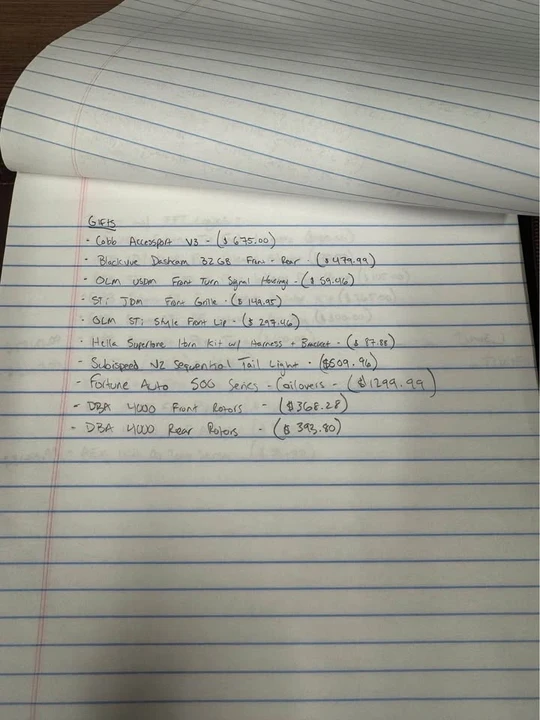 Gifts
- Cobb Accessport V3 - ($675.00)
- Blackvue Dashcam 32GB Front - Rear - ($479.99)
- OLM USDM Front Turn Signal Housings - ($59.46)
- STi JDM Front Grille - ($149.95)
- OLM STi Style Front Lip - ($297.46)
- Hella Supertone Horn Kit w/ Harness + Bracket - ($87.88)
- Subispeed V2 Sequential Tail Light - ($509.96)
- Fortune Auto 500 Series - Coilovers - ($1299.99)
- DBA 4000 Front Rotors - ($368.28)
- DBA 4000 Rear Rotors - ($393.80)